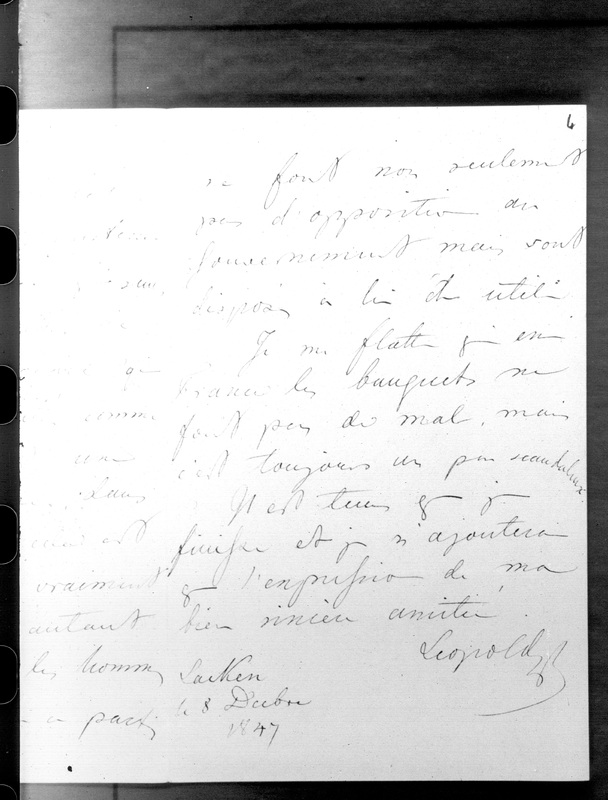 6
ne font non seulement
pas d'opposition au
Gouvernement mais sont
disposés à lui être utile
Je me flatte qu'en
France les banquets ne
font pas de mal, mais
c'est toujours un peu scandaleux.
Il est tems que je
finisse et je n'ajouterai
que l'expression de ma
bien sincère amitié.
Leopold
Laeken
le 8 Decbre
1847
comme
une
dans
est
vraiment
autant
les hommes